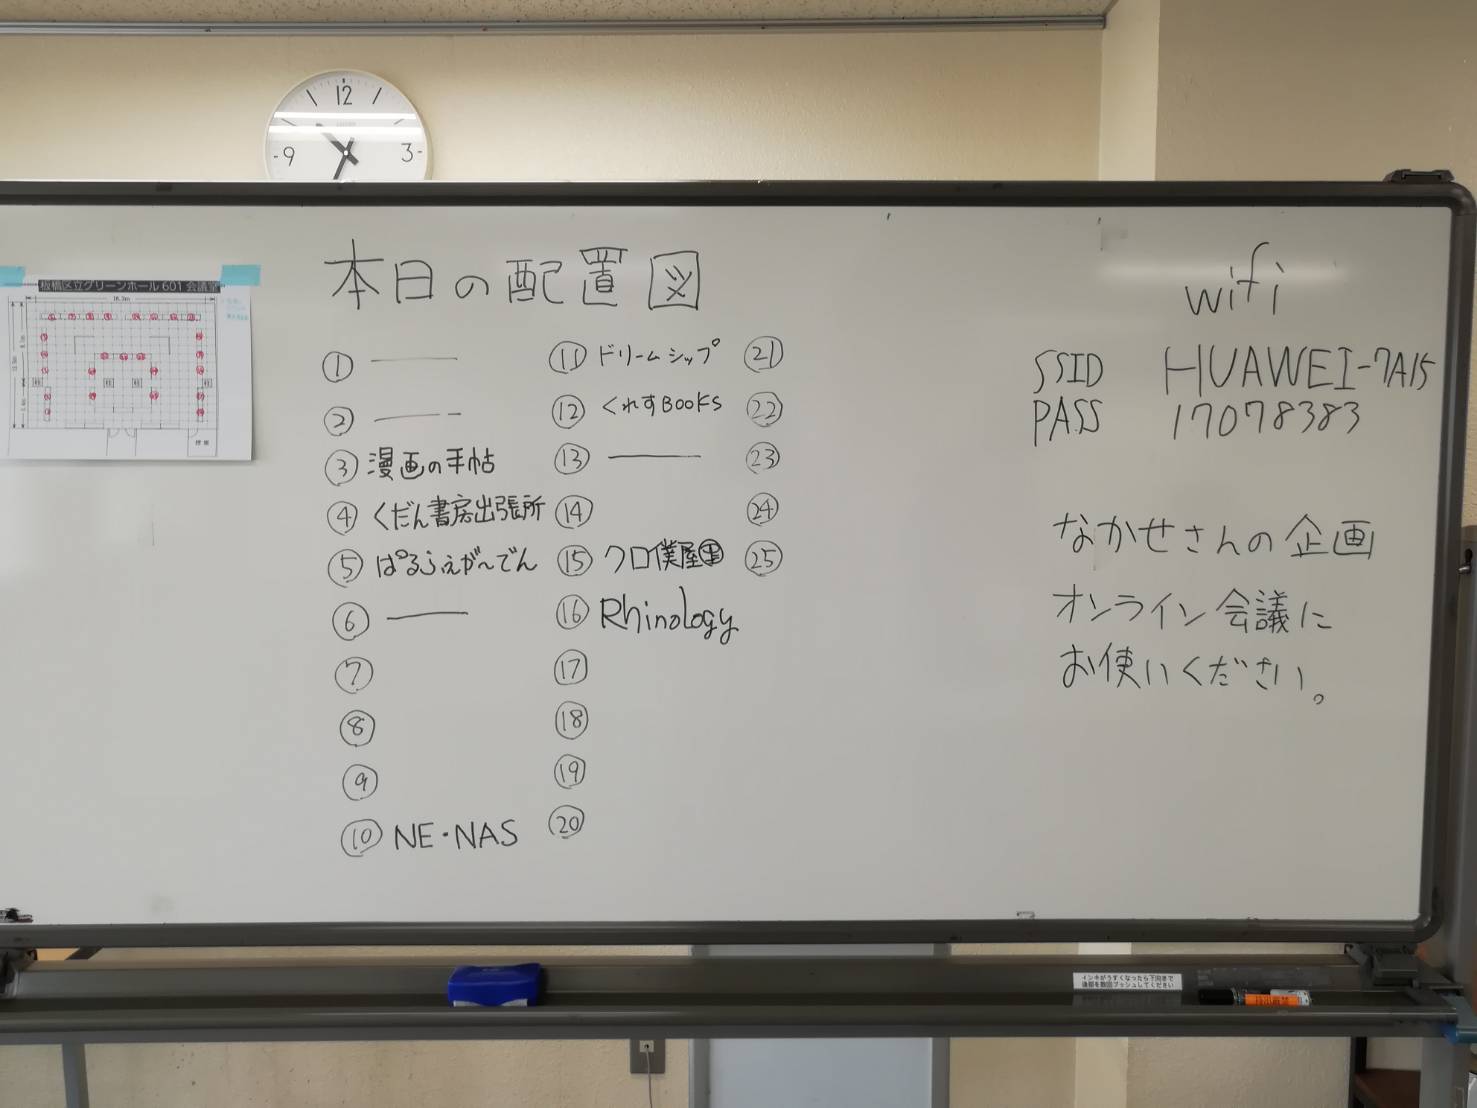 12
9
3
板橋区立グリーンホール 601 会議室
本日の配置図
① ———
② ———
③ 漫画の手帖
④ くだん書房出張所
⑤ ぱるふぇが〜でん
⑥ ———
⑦
⑧
⑨
⑩ NE・NAS
⑪ ドリームシップ
⑫ くれすBOOKS
⑬ ———
⑭
⑮ クロ僕屋
⑯ Rhinology
⑰
⑱
⑲
⑳
㉑
㉒
㉓
㉔
㉕
wifi
SSID HUAWEI-7A15
PASS 17078383
なかせさんの企画
オンライン会議に
お使いください。
インキがうすくなったら下向きで
後部を数回プッシュしてください